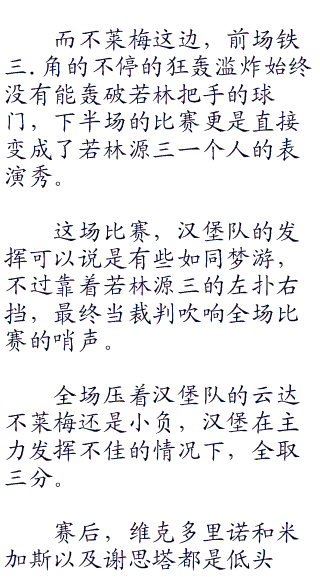 而不莱梅这边，前场铁
三.角的不停的狂轰滥炸始终
没有能轰破若林把手的球
门，下半场的比赛更是直接
变成了若林源三一个人的表
演秀。
这场比赛，汉堡队的发
挥可以说是有些如同梦游，
不过靠着若林源三的左扑右
挡，最终当裁判吹响全场比
赛的哨声。
全场压着汉堡队的云达
不莱梅还是小负，汉堡在主
力发挥不佳的情况下，全取
三分。
赛后，维克多里诺和米
加斯以及谢思塔都是低头